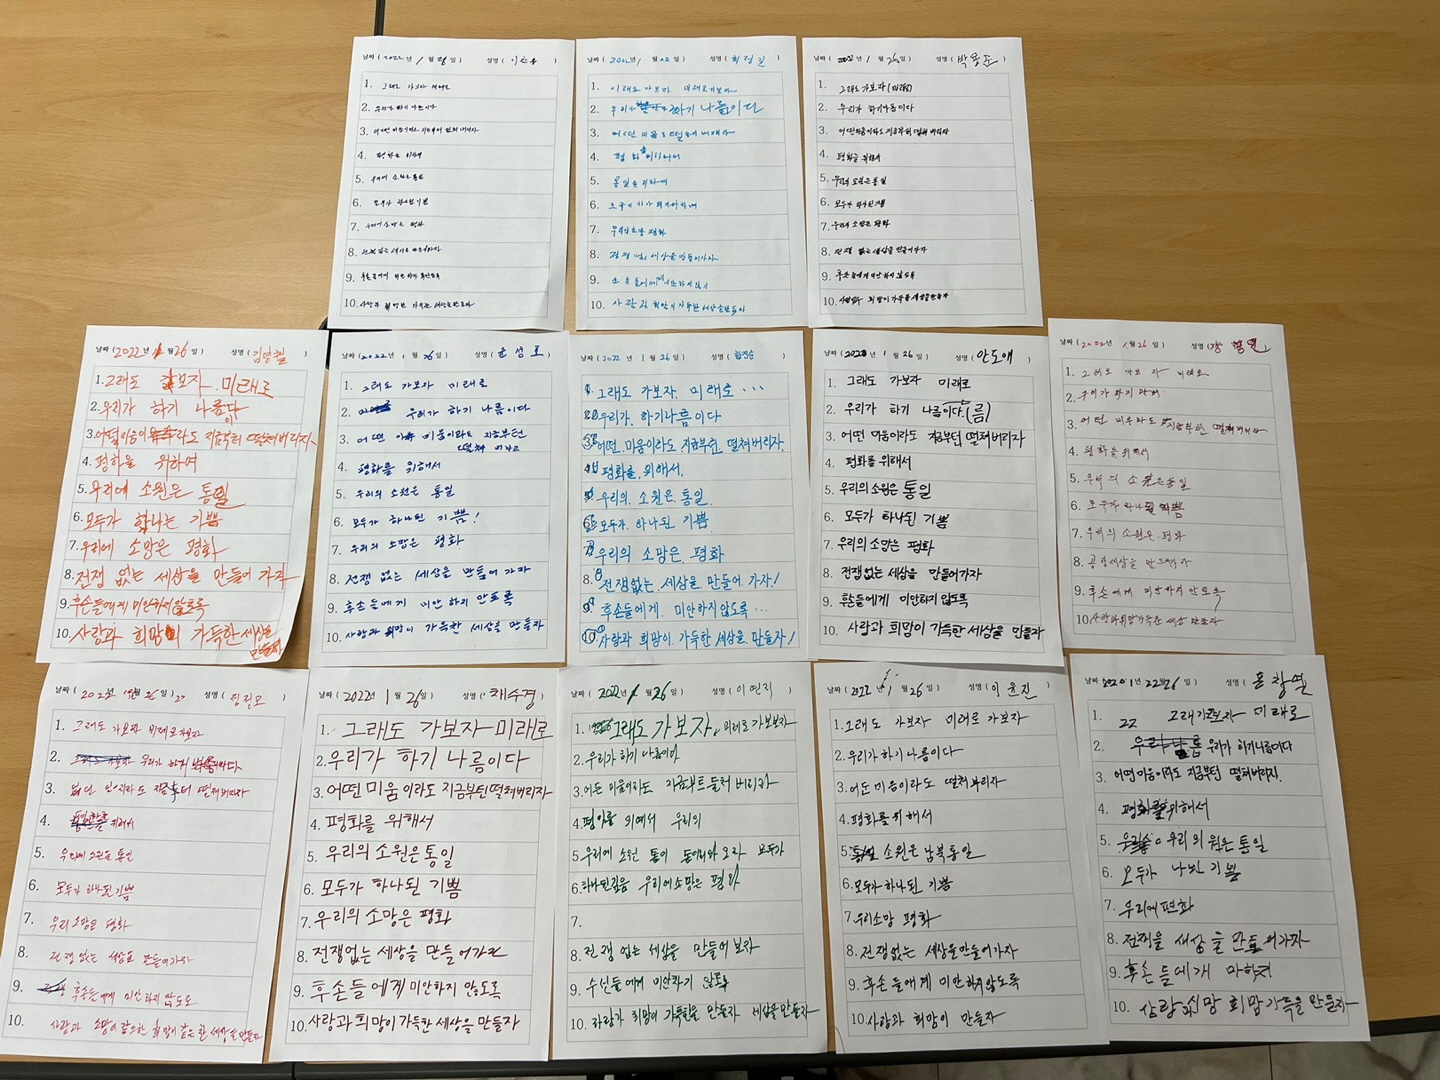 날짜 (2022 년 1 월 26 일) 성명 ( )
1. 그래도 가보자 미래로
2. 우리가 하기 나름이다
3. 어떤 미움이라도 지금부터 떨쳐 버리자
4. 평화를 위해
5. 우리에 소원은 통일
6. 모두가 하나된 기쁨
7. 우리에 소망은 평화
8. 전쟁 없는 세상을 만들어가자
9. 후손들에게 미안하지 않도록
10. 사랑과 희망이 가득한 세상을 만들자
날짜 (2022 년 1 월 26 일) 성명 ( )
1. 미래로 가보자
2. 우리가 하기 나름이다
3. 어떤 미움도 떨쳐 버리자
4. 평화를 위해서
5. 통일을 위하여
6.
7. 우리의 소망 평화
8. 전쟁 없는 세상을 만들어가자
9. 후손들에게
10. 사랑과 희망이 가득한 세상을 만들자
날짜 (2022 1 26일) 성명 (박용준 )
1. 그래도 가보자 (미래로)
2. 우리가 하기나름이다
3. 어떤미움이라도 지금부터 떨쳐 버리자
4. 평화를 위해서
5. 우리의 소원은 통일
6. 모두가 하나된 기쁨
7. 우리의 소망은 평화
8. 전쟁 없는 세상을 만들어가자
9. 후손들에게 미안하지 않도록
10. 사랑과 희망이 가득한 세상을 만들자
날짜 (2022 년 1 월 26 일 ) 성명 ( 김영철 )
1. 그래도 가보자 미래로
2. 우리가 하기 나름이다
3. 어떨미움이라도 지금부터 떨쳐버리자
4. 평화을 위하여
5. 우리에 소원은 통일
6. 모두가 하나는 기쁨
7. 우리에 소망은 평화
8. 전쟁 없는 세상을 만들어 가자
9. 후손들에게 미안하지않도록
10. 사랑과 희망이 가득한 세상을 만들자
날짜 (2022 년 1 월 26 일 ) 성명 ( 윤성호 )
1. 그래도 가보자 미래로
2. 우리가 하기 나름이다
3. 어떤 미움이라도 지금부턴 떨쳐 버리고
4. 평화를 위해서
5. 우리의 소원은 통일
6. 모두가 하나된 기쁨!
7. 우리의 소망은 평화
8. 전쟁 없는 세상을 만들어 가자
9. 후손들에게 미안 하지 안토록
10. 사랑과 희망이 가득찬 세상을 만들자
날짜 ( 2022 년 1 월 26 일 ) 성명 ( )
1. 그래도 가보자. 미래로 ...
2. 우리가. 하기나름이다
3. 어떤. 미움이라도 지금부턴. 떨쳐버리자.
4. 평화를. 위해서.
5. 우리의. 소원은. 통일.
6. 모두가. 하나된 기쁨
7. 우리의 소망은. 평화
8. 전쟁없는. 세상을 만들어. 가자!
9. 후손들에게. 미안하지않도록 ...
10. 사랑과 희망이. 가득한 세상을. 만들자!
날짜 ( 2022 년 1 월 26 일 ) 성명 ( 안도애 )
1. 그래도 가보자 미래로
2. 우리가 하기 나름이다. (름)
3. 어떤 미움이라도 지금부턴 떨쳐버리자
4. 평화를 위해서
5. 우리의 소원은 통일
6. 모두가 하나된 기쁨
7. 우리의 소망은 평화
8. 전쟁없는 세상을 만들어가자
9. 후손들에게 미안하지 않도록
10. 사랑과 희망이 가득한 세상을 만들자
날짜 ( 2022 년 1 월 26 일 ) 성명 ( )
1. 그래도 가보자 미래로
2. 우리가 하기
3. 어떤 미우라도 지금부턴 떨쳐버리자
4. 평화를 위해서
5. 우리의 소원은통일
6. 모두가 하나된 기쁨
7. 우리의 소원은 평화
8. 세상을 만들자
9. 후손에게 미안하지 안도록
10. 사랑과희망가득한 세상 만들자
날짜 ( 2022 26 일) 성명 ( )
1. 그래도 가보자 미래로 가자
2. 우리가 하기
3. 지금부터 떨쳐버리자
4. 위해서
5. 우리에 소원은 통일
6. 모두가 하나된 기쁨
7. 우리 소망은 평화
8. 전쟁 없는 세상을 만들어가자
9. 후손들에게 미안하지 않도록
10. 사랑과 세상을 만들자
날짜 ( 2022년 1 월 26일 ) 성명 ( 채수경 )
1. 그래도 가보자 미래로
2. 우리가 하기 나름이다
3. 어떤 미움이라도 지금부턴 떨쳐버리자
4. 평화를 위해서
5. 우리의 소원은 통일
6. 모두가 하나된 기쁨
7. 우리의 소망은 평화
8. 전쟁없는 세상을 만들어가자
9. 후손들에게 미안하지 않도록
10. 사랑과 희망이 가득한 세상을 만들자
날짜 ( 2022 1 26 일 ) 성명 ( 이연지 )
1. 그래도 가보자, 미래로 가보자
2. 우리가 하기 나름이
3. 어든 미움이라도 지금부트 들처 버리자
4. 평아를 의에서 우리의
5. 우리에 소원 통이 모두가
6. 하나된깊음 우리에소망은 평화
7.
8. 전쟁 없는 세상을 만들어 보자
9. 수선들에게 미안하기 않토록
10. 희망이 가득한을 만들자 세상을만들자
날짜 ( 2022 1 월 26 일 ) 성명 ( 이윤진 )
1. 그래도 가보자 미래로 가보자
2. 우리가 하기 나름이다
3. 어둔 미음이라도 떨쳐부리자
4. 평화를위 해서
5. 소원은 남북통일
6. 모두가 하나된 기쁨
7. 우리소망 평화
8. 전쟁없는 세상을만들어가자
9. 후손들애게 미안하지않도록
10. 사랑과 희망이 만들자
날짜 ( 2201 22 26 일 ) 성명 ( 윤창열 )
1. 22 미래로
2. 우리가 하기나름이다
3. 어떤미움이라도 지금부턴 떨쳐버리자.
4. 평화를위해서
5. 우리의 원은 통일
6. 모두가 기쁨
7. 우리에편화
8. 세상을 만들어가자
9. 후손들에개
10. 희망 희망가득을 만들자